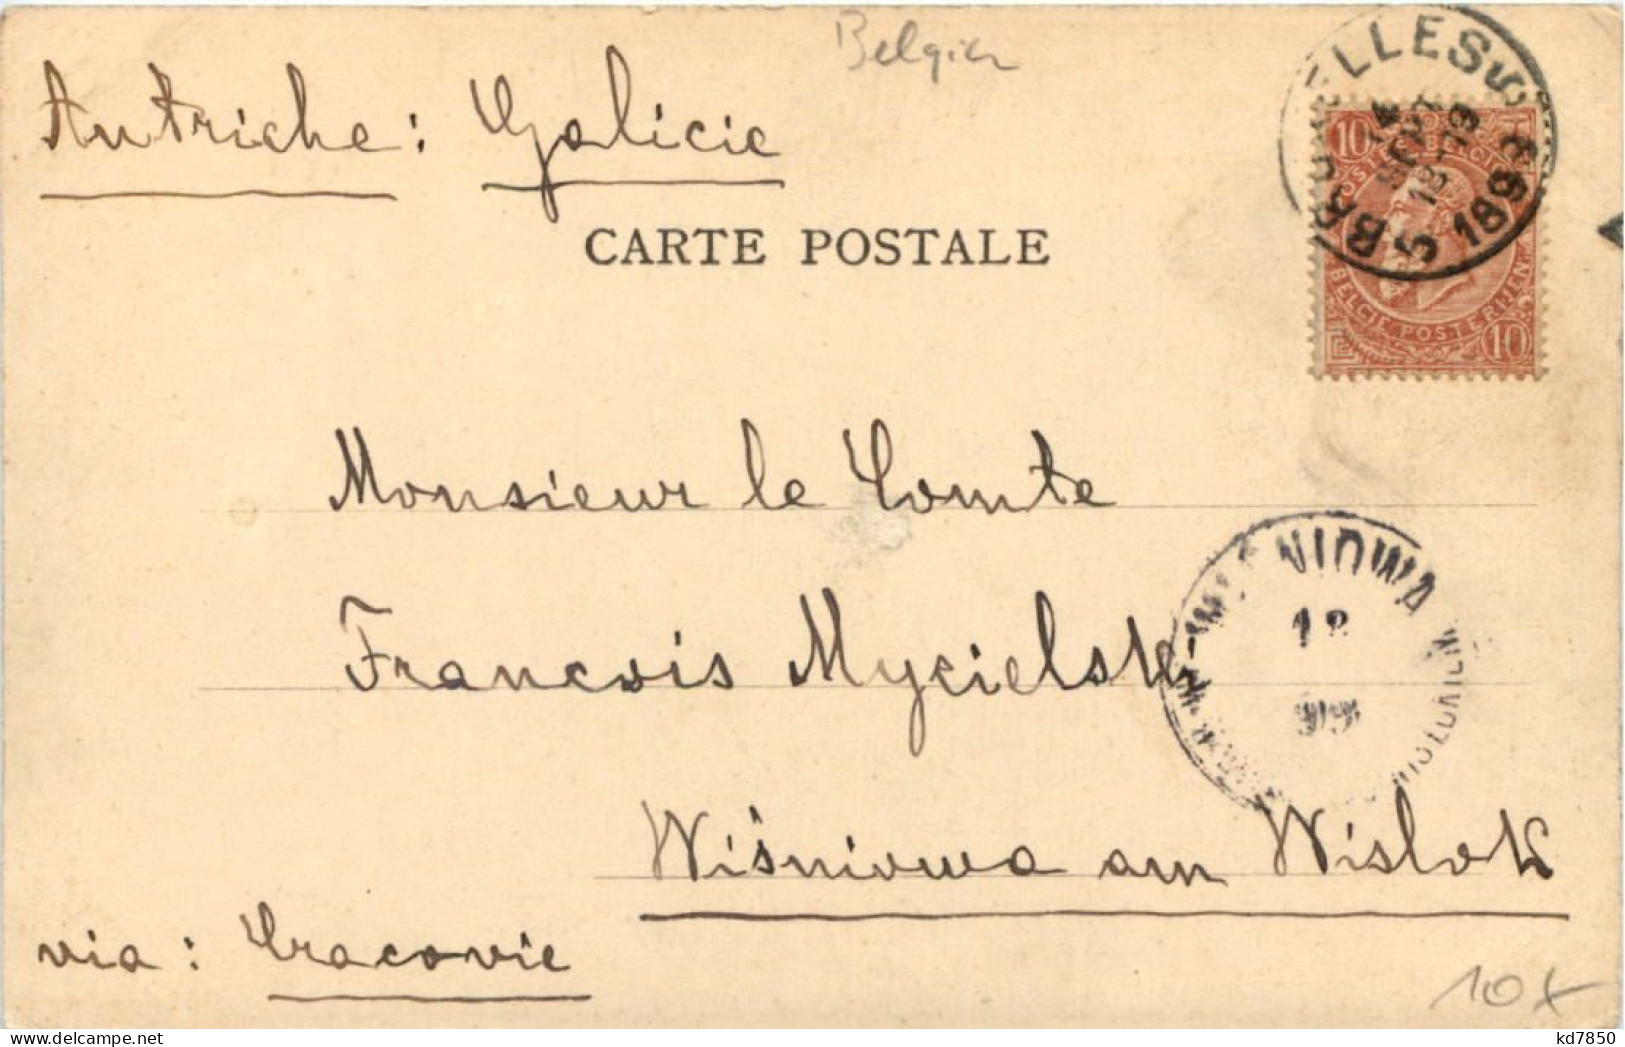 Belgien
Autriche: Galicie
BRUXELLES 5
14
SEPT
18-19
1899
10
BELGIE POSTERIJEN
10
CARTE POSTALE
Monsieur le Comte
François Mycielski
WIŚNIOWA
12
99
Wiśniowa am Wislok
via: Cracovie
10x
kd7850